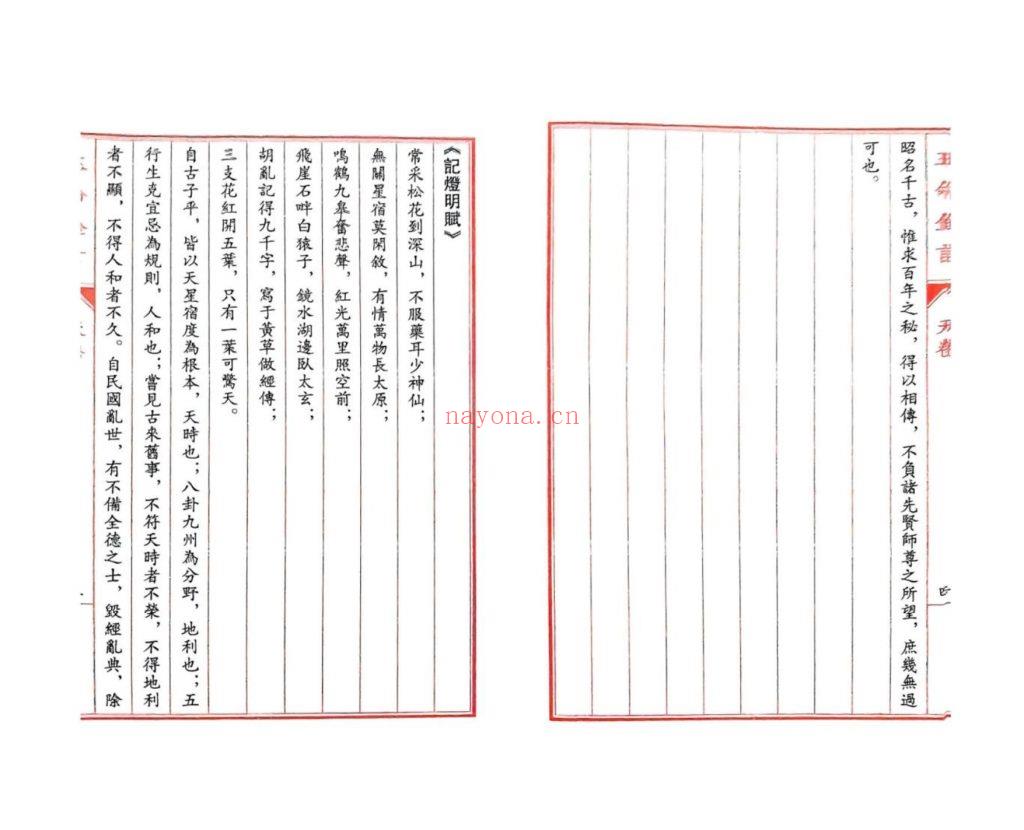 昭名千古，惟求百年之秘，得以相傳，不負諸先賢師尊之所望，庶幾無過
可也。
《記燈明賦》
常采松花到深山，不服藥耳少神仙；
無關星宿莫閑敘，有情萬物長太原；
鳴鶴九皋奮悲聲，紅光萬里照空前；
飛崖石畔白猿子，鏡水湖邊臥太玄；
胡亂記得九千字，寫于黃草做經傳；
三支花紅開五葉，只有一葉可驚天。
自古子平，皆以天星宿度為根本，天時也；八卦九州為分野，地利也；五
行生克宜忌為規則，人和也；嘗見古來舊事，不符天時者不榮，不得地利
者不顯，不得人和者不久。自民國亂世，有不備全德之士，毀經亂典，除
nayona.cn